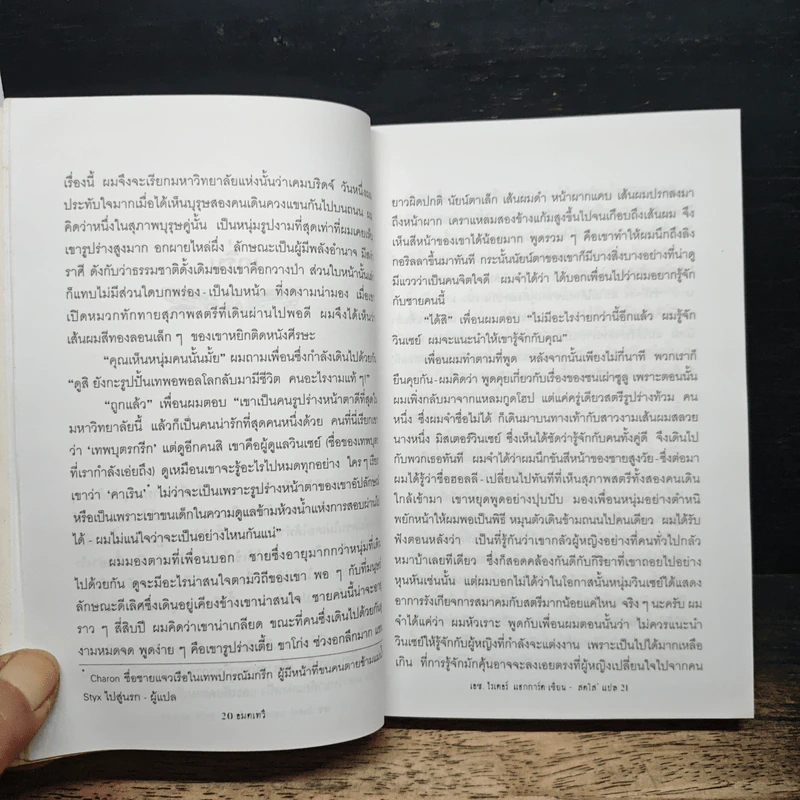 เรื่องนี้ ผมจึงจะเรียกมหาวิทยาลัยแห่งนั้นว่าเคมบริดจ์ วันหนึ่งผม
ประทับใจมากเมื่อได้เห็นบุรุษสองคนเดินควงแขนกันไปบนถนน ผม
คิดว่าหนึ่งในสุภาพบุรุษคู่นั้น เป็นหนุ่มรูปงามที่สุดเท่าที่ผมเคยเห็น
เขารูปร่างสูงมาก อกผายไหล่ผึ่ง ลักษณะเป็นผู้มีพลังอำนาจ มีสง่า
ราศี ดังกับว่าธรรมชาติดั้งเดิมของเขาคือกวางป่า ส่วนใบหน้านั้นเล่า
ก็แทบไม่มีส่วนใดบกพร่อง - เป็นใบหน้า ที่งดงามน่ามอง เมื่อเขา
เปิดหมวกทักทายสุภาพสตรีที่เดินผ่านไปพอดี ผมจึงได้เห็นว่า
เส้นผมสีทองลอนเล็ก ๆ ของเขาหยิกติดหนังศีรษะ
"คุณเห็นหนุ่มคนนั้นมั้ย" ผมถามเพื่อนซึ่งกำลังเดินไปด้วยกัน
"ดูสิ ยังกะรูปปั้นเทพอพอลโลกลับมามีชีวิต คนอะไรงามแท้ ๆ!"
"ถูกแล้ว" เพื่อนผมตอบ "เขาเป็นคนรูปร่างหน้าตาดีที่สุดใน
มหาวิทยาลัยนี้ แล้วก็เป็นคนน่ารักที่สุดคนหนึ่งด้วย คนที่นี่เรียกเขา
ว่า 'เทพบุตรกรีก' แต่ดูอีกคนสิ เขาคือผู้ดูแลวินเซย์ (ชื่อของเทพบุตร
ที่เรากำลังเอ่ยถึง) ดูเหมือนเขาจะรู้อะไรไปหมดทุกอย่าง ใคร ๆ เรียก
เขาว่า 'คาเริน*' ไม่ว่าจะเป็นเพราะรูปร่างหน้าตาของเขาอัปลักษณ์
หรือเป็นเพราะเขาขนเด็กในความดูแลข้ามห้วงน้ำแห่งการสอบผ่านไป
ได้ - ผมไม่แน่ใจว่าจะเป็นอย่างไหนกันแน่"
ผมมองตามที่เพื่อนบอก ชายซึ่งอายุมากกว่าหนุ่มที่เดิน
ไปด้วยกัน ดูจะมีอะไรน่าสนใจตามวิถีของเขา พอ ๆ กับที่มนุษย์
ลักษณะดีเลิศซึ่งเดินอยู่เคียงข้างเขาน่าสนใจ ชายคนนี้น่าจะอายุ
ราว ๆ สี่สิบปี ผมคิดว่าเขาน่าเกลียด ขณะที่คนซึ่งเดินไปด้วยกัน
งามหมดจด พูดง่าย ๆ คือเขารูปร่างเตี้ย ขาโก่ง ช่วงอกลึกมาก แขน
* Charon ชื่อชายแจวเรือในเทพปกรณัมกรีก ผู้มีหน้าที่ขนคนตายข้ามแม่น้ำ
Styx ไปสู่นรก - ผู้แปล
20 อมตเทวี
ยาวผิดปกติ นัยน์ตาเล็ก เส้นผมดำ หน้าผากแคบ เส้นผมปรกลงมา
ถึงหน้าผาก เคราแหลมสองข้างแก้มสูงขึ้นไปจนเกือบถึงเส้นผม จึง
เห็นสีหน้าของเขาได้น้อยมาก พูดรวม ๆ คือเขาทำให้ผมนึกถึงลิง
กอริลลาขึ้นมาทันที กระนั้นนัยน์ตาของเขาก็มีบางสิ่งบางอย่างที่น่าดู
มีแววว่าเป็นคนจิตใจดี ผมจำได้ว่า ได้บอกเพื่อนไปว่าผมอยากรู้จัก
กับชายคนนี้
"ได้สิ" เพื่อนผมตอบ "ไม่มีอะไรง่ายกว่านี้อีกแล้ว ผมรู้จัก
วินเซย์ ผมจะแนะนำให้เขารู้จักกับคุณ"
เพื่อนผมทำตามที่พูด หลังจากนั้นเพียงไม่กี่นาที พวกเราก็
ยืนคุยกัน - ผมคิดว่า พูดคุยเกี่ยวกับเรื่องของชนเผ่าซูลู เพราะตอนนั้น
ผมเพิ่งกลับมาจากแหลมกูดโฮป แต่แค่ครู่เดียวสตรีรูปร่างท้วม คน
หนึ่ง ซึ่งผมจำชื่อไม่ได้ ก็เดินมาบนทางเท้ากับสาวงามเส้นผมสลวย
นางหนึ่ง มิสเตอร์วินเซย์ ซึ่งเห็นได้ชัดว่ารู้จักกับคนทั้งคู่ดี จึงเดินไป
กับพวกเธอทันที ผมจำได้ว่าผมนึกขันสีหน้าของชายสูงวัย - ซึ่งต่อมา
ผมได้รู้ว่าชื่อฮอลลี่ - เปลี่ยนไปทันทีที่เห็นสุภาพสตรีทั้งสองคนเดิน
ใกล้เข้ามา เขาหยุดพูดอย่างปุบปับ มองเพื่อนหนุ่มอย่างตำหนิ
พยักหน้าให้ผมพอเป็นพิธี หมุนตัวเดินข้ามถนนไปคนเดียว ผมได้รับ
ฟังตอนหลังว่า เป็นที่รู้กันว่าเขากลัวผู้หญิงอย่างที่คนทั่วไปกลัว
หมาบ้าเลยทีเดียว ซึ่งก็สอดคล้องกันดีกับกิริยาที่เขาถอยไปอย่าง
หุนหันเช่นนั้น แต่ผมบอกไม่ได้ว่าในโอกาสนั้นหนุ่มวินเซย์ได้แสดง
อาการรังเกียจการสมาคมกับสตรีมากน้อยแค่ไหน จริง ๆ นะครับ ผม
จำได้แค่ว่า ผมหัวเราะ พูดกับเพื่อนผมตอนนั้นว่า ไม่ควรแนะนำ
วินเซย์ให้รู้จักกับผู้หญิงที่กำลังจะแต่งงาน เพราะเป็นไปได้มากเหลือ
เกิน ที่การรู้จักมักคุ้นอาจจะลงเอยตรงที่ผู้หญิงเปลี่ยนใจไปจากคน
เฮช. ไรเดอร์ แฮกการ์ด เขียน - สดใส แปล 21